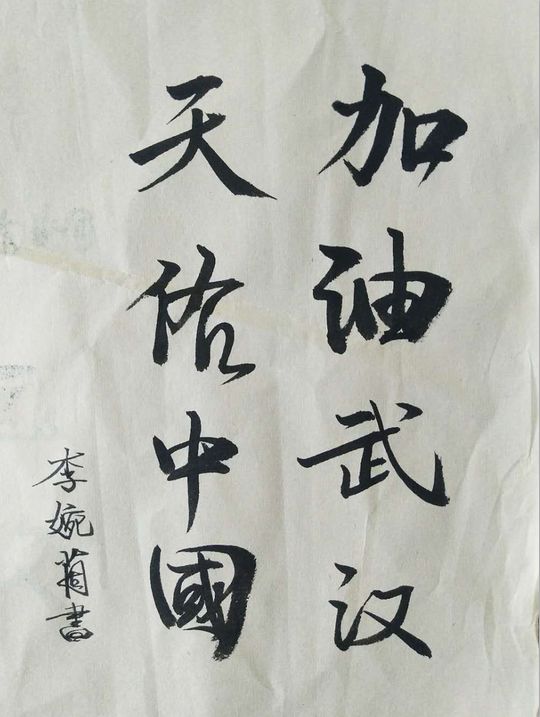 加油武汉
天佑中國
李婉蘭書